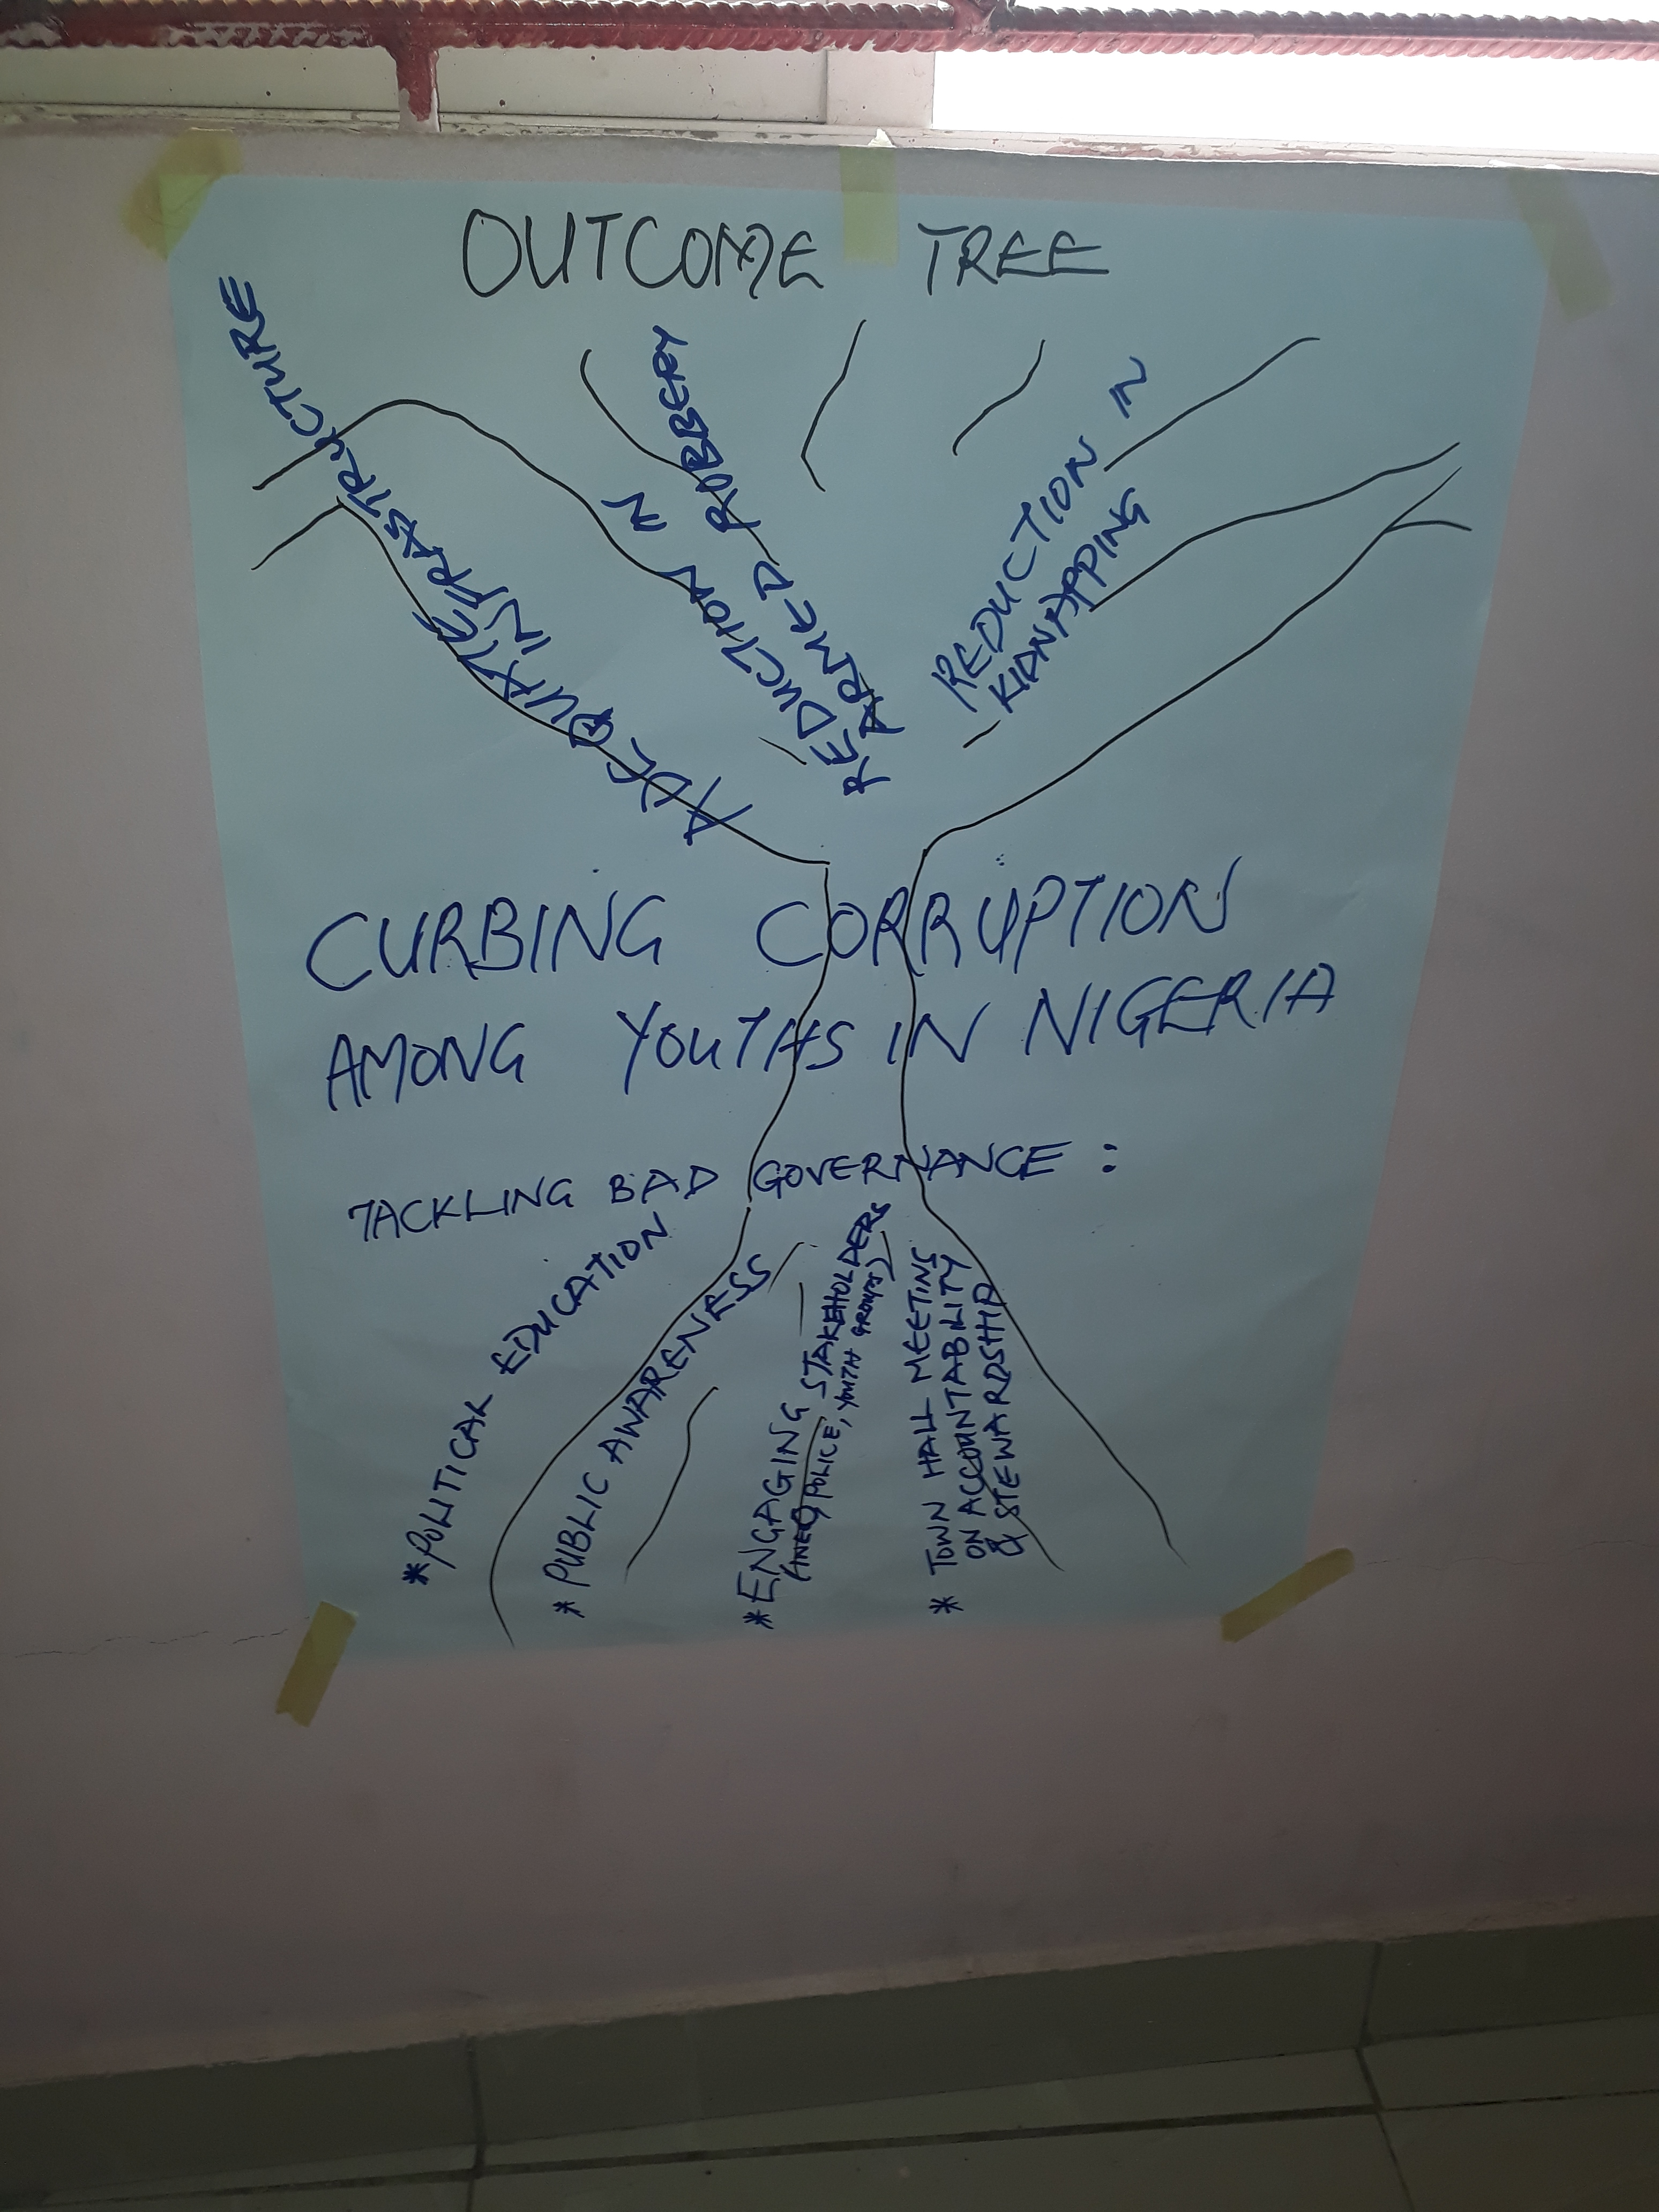 OUTCOME TREE
ADEQUATE
INFRASTRUCTURE
REDUCTION IN
ARMED ROBBERY
REDUCTION IN
KIDNAPPING
CURBING CORRUPTION
AMONG YOUTHS IN NIGERIA
TACKLING BAD GOVERNANCE :
*POLITICAL EDUCATION
* PUBLIC AWARENESS
*ENGAGING STAKEHOLDERS
POLICE, YOUTH GROUPS)
* TOWN HALL MEETING
ON ACCOUNTABILITY
& STEWARDSHIP